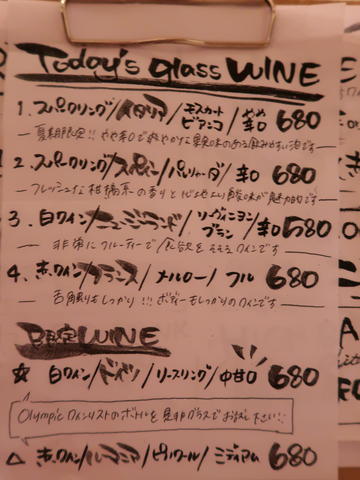 Today's glass WINE
1. スパークリング/イタリア/モスカートビアンコ/やや辛口 680
2. スパークリング/スペイン/パレリャーダ/辛口 680
フレッシュな柑橘系の香りとほどよい酸味が魅力的です
3. 白ワイン/ニュージーランド/ソーヴィニヨンブラン/辛口 580
非常にフルーティーで食欲をそそるワインです
4. 赤ワイン/フランス/メルロー/フル 680
舌触りもしっかり!!!ボディーもしっかりのワインです
限定WINE
☆ 白ワイン/ドイツ/リースリング/中甘口 680
Olympic ワインリストのボトルを是非グラスでお試し下さい!!
△ 赤ワイン/ルーマニア/ピノノワール/ミディアム 680